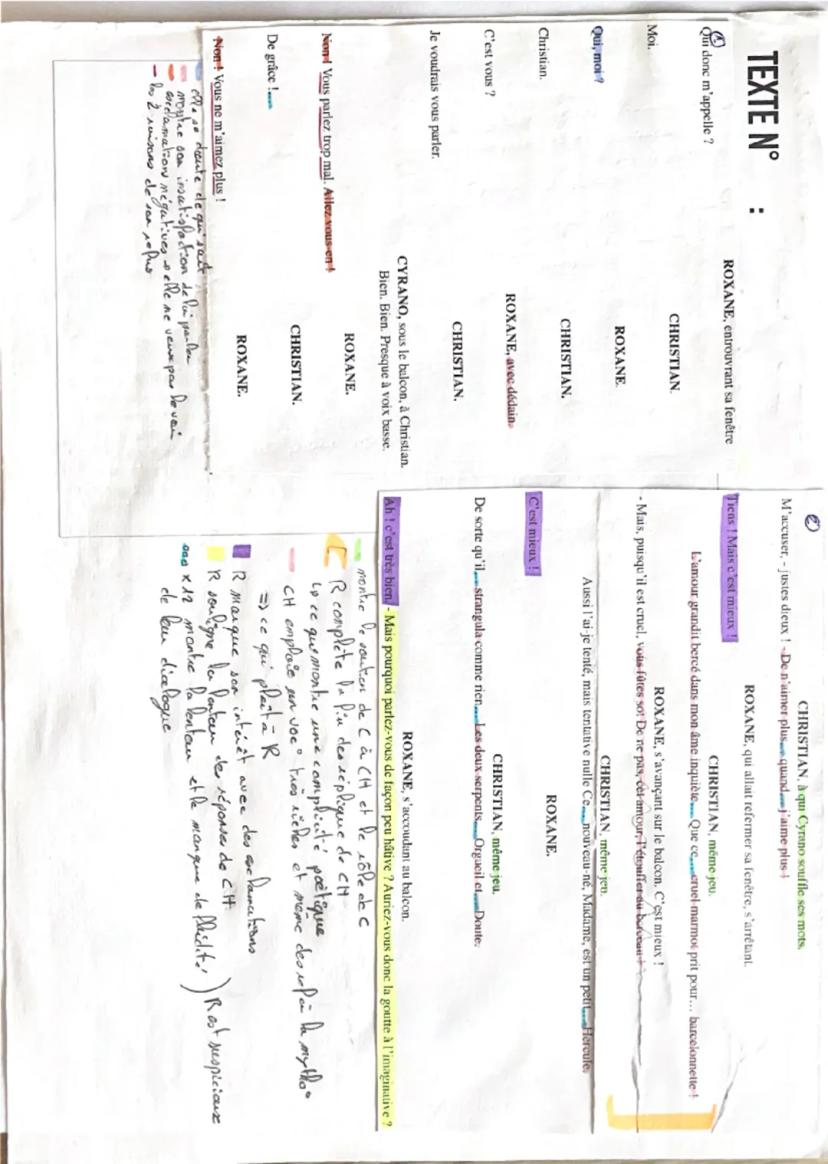 TEXTE N° :
①
ROXANE, entrouvrant sa fenêtre
Qui donc m'appelle ?
CHRISTIAN.
Moi.
ROXANE.
Qui, moi ?
CHRISTIAN.
Christian.
ROXANE, avec dédain.
C'est vous ?
CHRISTIAN.
Je voudrais vous parler.
CYRANO, sous le balcon, à Christian.
Bien. Bien. Presque à voix basse.
ROXANE.
Non ! Vous parlez trop mal. Allez-vous-en !
CHRISTIAN.
De grâce !...
ROXANE.
Non ! Vous ne m'aimez plus !
elle se doute de qui sait
montre son insatisfaction de lui parler
exclamations négatives → elle ne veux pas le voir
les 2 raisons de son refus
②
CHRISTIAN, à qui Cyrano souffle ses mots.
M'accuser, - justes dieux ! - De n'aimer plus... quand... j'aime plus !
ROXANE, qui allait refermer sa fenêtre, s'arrêtant.
Tiens ! Mais c'est mieux !
CHRISTIAN, même jeu.
L'amour grandit bercé dans mon âme inquiète... Que ce... cruel marmot prit pour... barcelonnette !
ROXANE, s'avançant sur le balcon. C'est mieux !
- Mais, puisqu'il est cruel, vous fûtes sot De ne pas, cet amour, l'étouffer au berceau !
CHRISTIAN, même jeu.
Aussi l'ai-je tenté, mais tentative nulle Ce... nouveau-né, Madame, est un petit... Hercule.
ROXANE.
C'est mieux !
CHRISTIAN, même jeu.
De sorte qu'il... strangula comme rien... Les deux serpents... Orgueil et... Doute.
ROXANE, s'accoudant au balcon.
Ah ! c'est très bien! - Mais pourquoi parlez-vous de façon peu hâtive ? Auriez-vous donc la goutte à l'imaginative ?
montre le soutien de C à CH et le rôle de C
R complète la fin des réplique de CH
↳ ce que montre une complicité poétique
CH emploie un voc° très riches et même des réf à la mytho°
⇒ ce qui plaît à R
R marque son intérêt avec des exclamations
R souligne la lenteur des réponses de CH
x 12 montre la lenteur et le manque de fluidité
de leur dialogue
) R est suspicieux